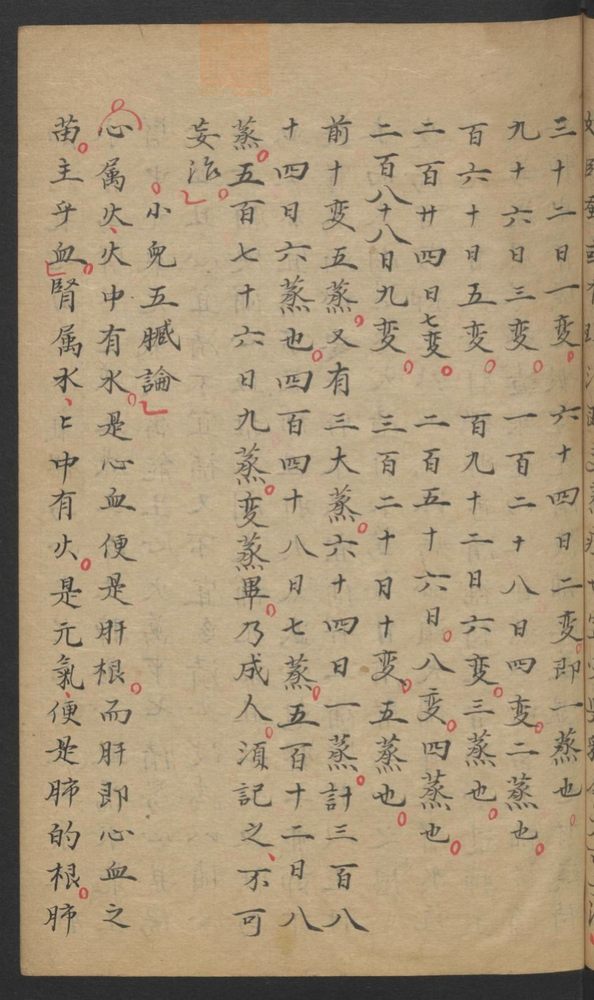 三十二日一变六十四日二变即一蒸也
九十六日三变一百二十八日四变二蒸也
百六十日五变百九十二日六变三蒸也
二百廿四日七变二百五十六日八变四蒸也
二百八十八日九变三百二十日十变五蒸也
前十变五蒸又有三大蒸六十四日一蒸計三百八
十四日六蒸也四百四十八日七蒸五百十二日八
蒸五百七十六日九蒸变蒸畢乃成人須記之不可
妄治
小兒五臟論
心属火火中有水是心血便是肝根而肝即心血之
苗主乎血腎属水〻中有火是元氣便是肺的根肺